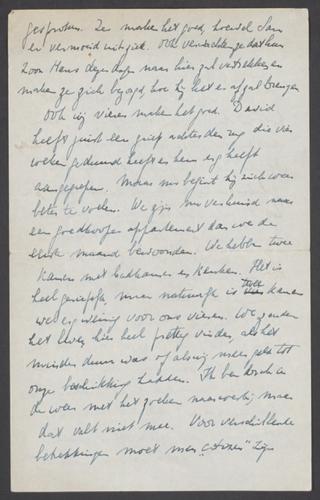 gesproken. Ze maken het goed, hoewel Sam
er vermoeid uitziet. Ook verwachten ze dat hun
zoon Hans dezer dagen naar hier zal vertrekken en
maken ze zich bezorgd, hoe hij het er af zal brengen
Ook wij vieren maken het goed. David
heeft juist een griep achter den rug die vier
weken geduurd heeft en hem erg heeft
aangegrepen. Maar nu begint hij zich weer
beter te voelen. We zijn nu verhuisd naar
een goedkooper appartement dan we de
eerste maand bewoonden. We hebben twee
kamers met badkamer en keuken. Het is
heel geriefelijk, maar natuurlijk is twee kamers
wel erg weinig voor ons vieren. We zouden
het leven hier heel prettig vinden, als het
minder duur was of als wij meer geld tot
onze beschikking hadden. Ik ben druk in
de weer met het zoeken naar werk, maar
dat valt niet mee. Voor verschillende
betrekkingen moet men "citizen" zijn